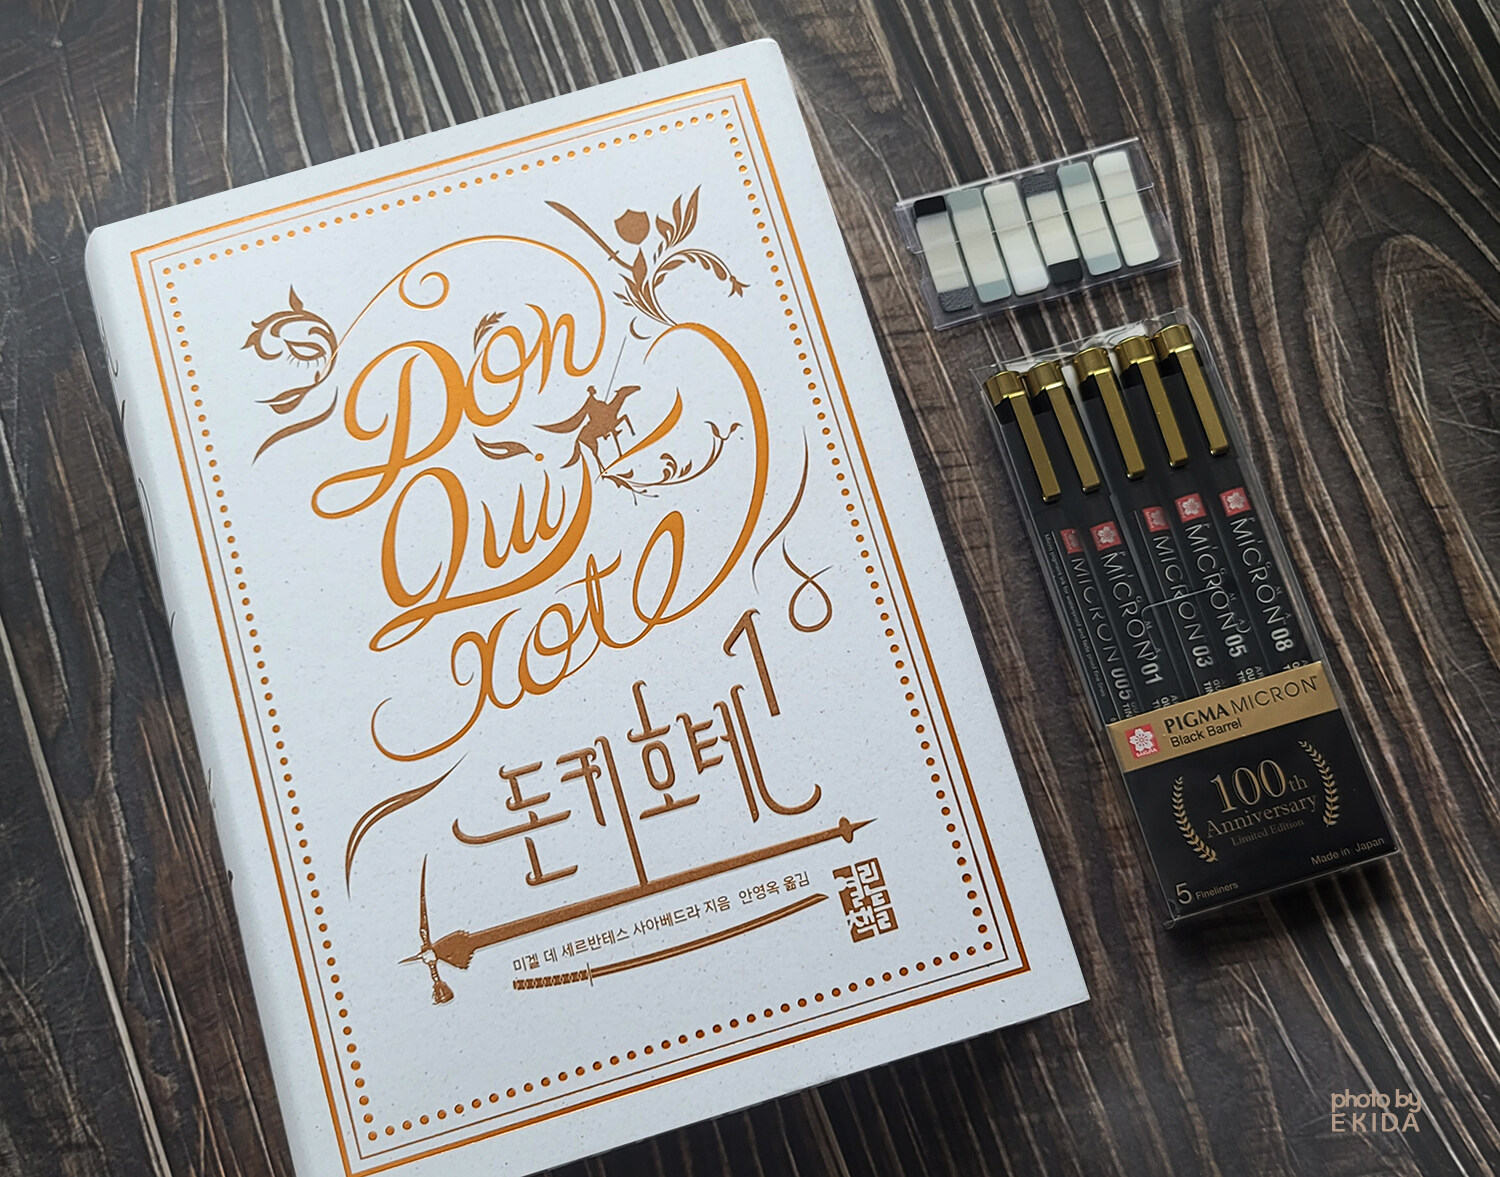 Don
Qui
xote
돈키호테 1
미겔 데 세르반테스 사아베드라 지음 안영옥 옮김
열린
책들
MICRON 005
MICRON 01
MICRON 03
MICRON 05
MICRON 08
SAKURA
PIGMA MICRON™
Black Barrel
100th
Anniversary
Limited Edition
Made in Japan
5 Fineliners
photo by
EKIDA